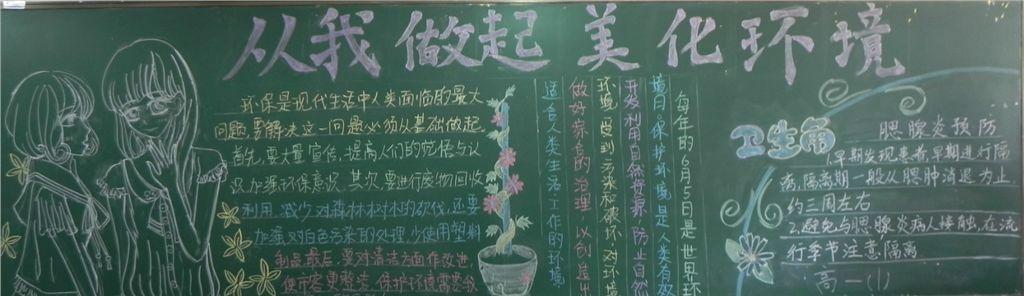 从我做起 美化环境
环保是现代生活中人类面临的最大
问题,要解决这一问题必须从基础做起
首先,要大量宣传,提高人们的觉悟与认
识,加强环保意识,其次,要进行废物回收
利用,减少对森林树木的砍伐,还要
加强对白色污染的处理,少使用塑料
制品,最后,要对清洁方面作改进
使市容更整洁,保护环境需要我
每年的6月5日是世界环
境日,保护环境是人类有效
开发利用自然资源,防止自然
环境受到污染和破坏,对环境
做好综合的治理,以创造出
适合人类生活、工作的环境
卫生角
腮腺炎预防
早期发现患者,早期进行隔
离,隔离期一般从腮肿消退为止
约三周左右
2.避免与腮腺炎病人接触,在流
行季节注意隔离
高一(1)